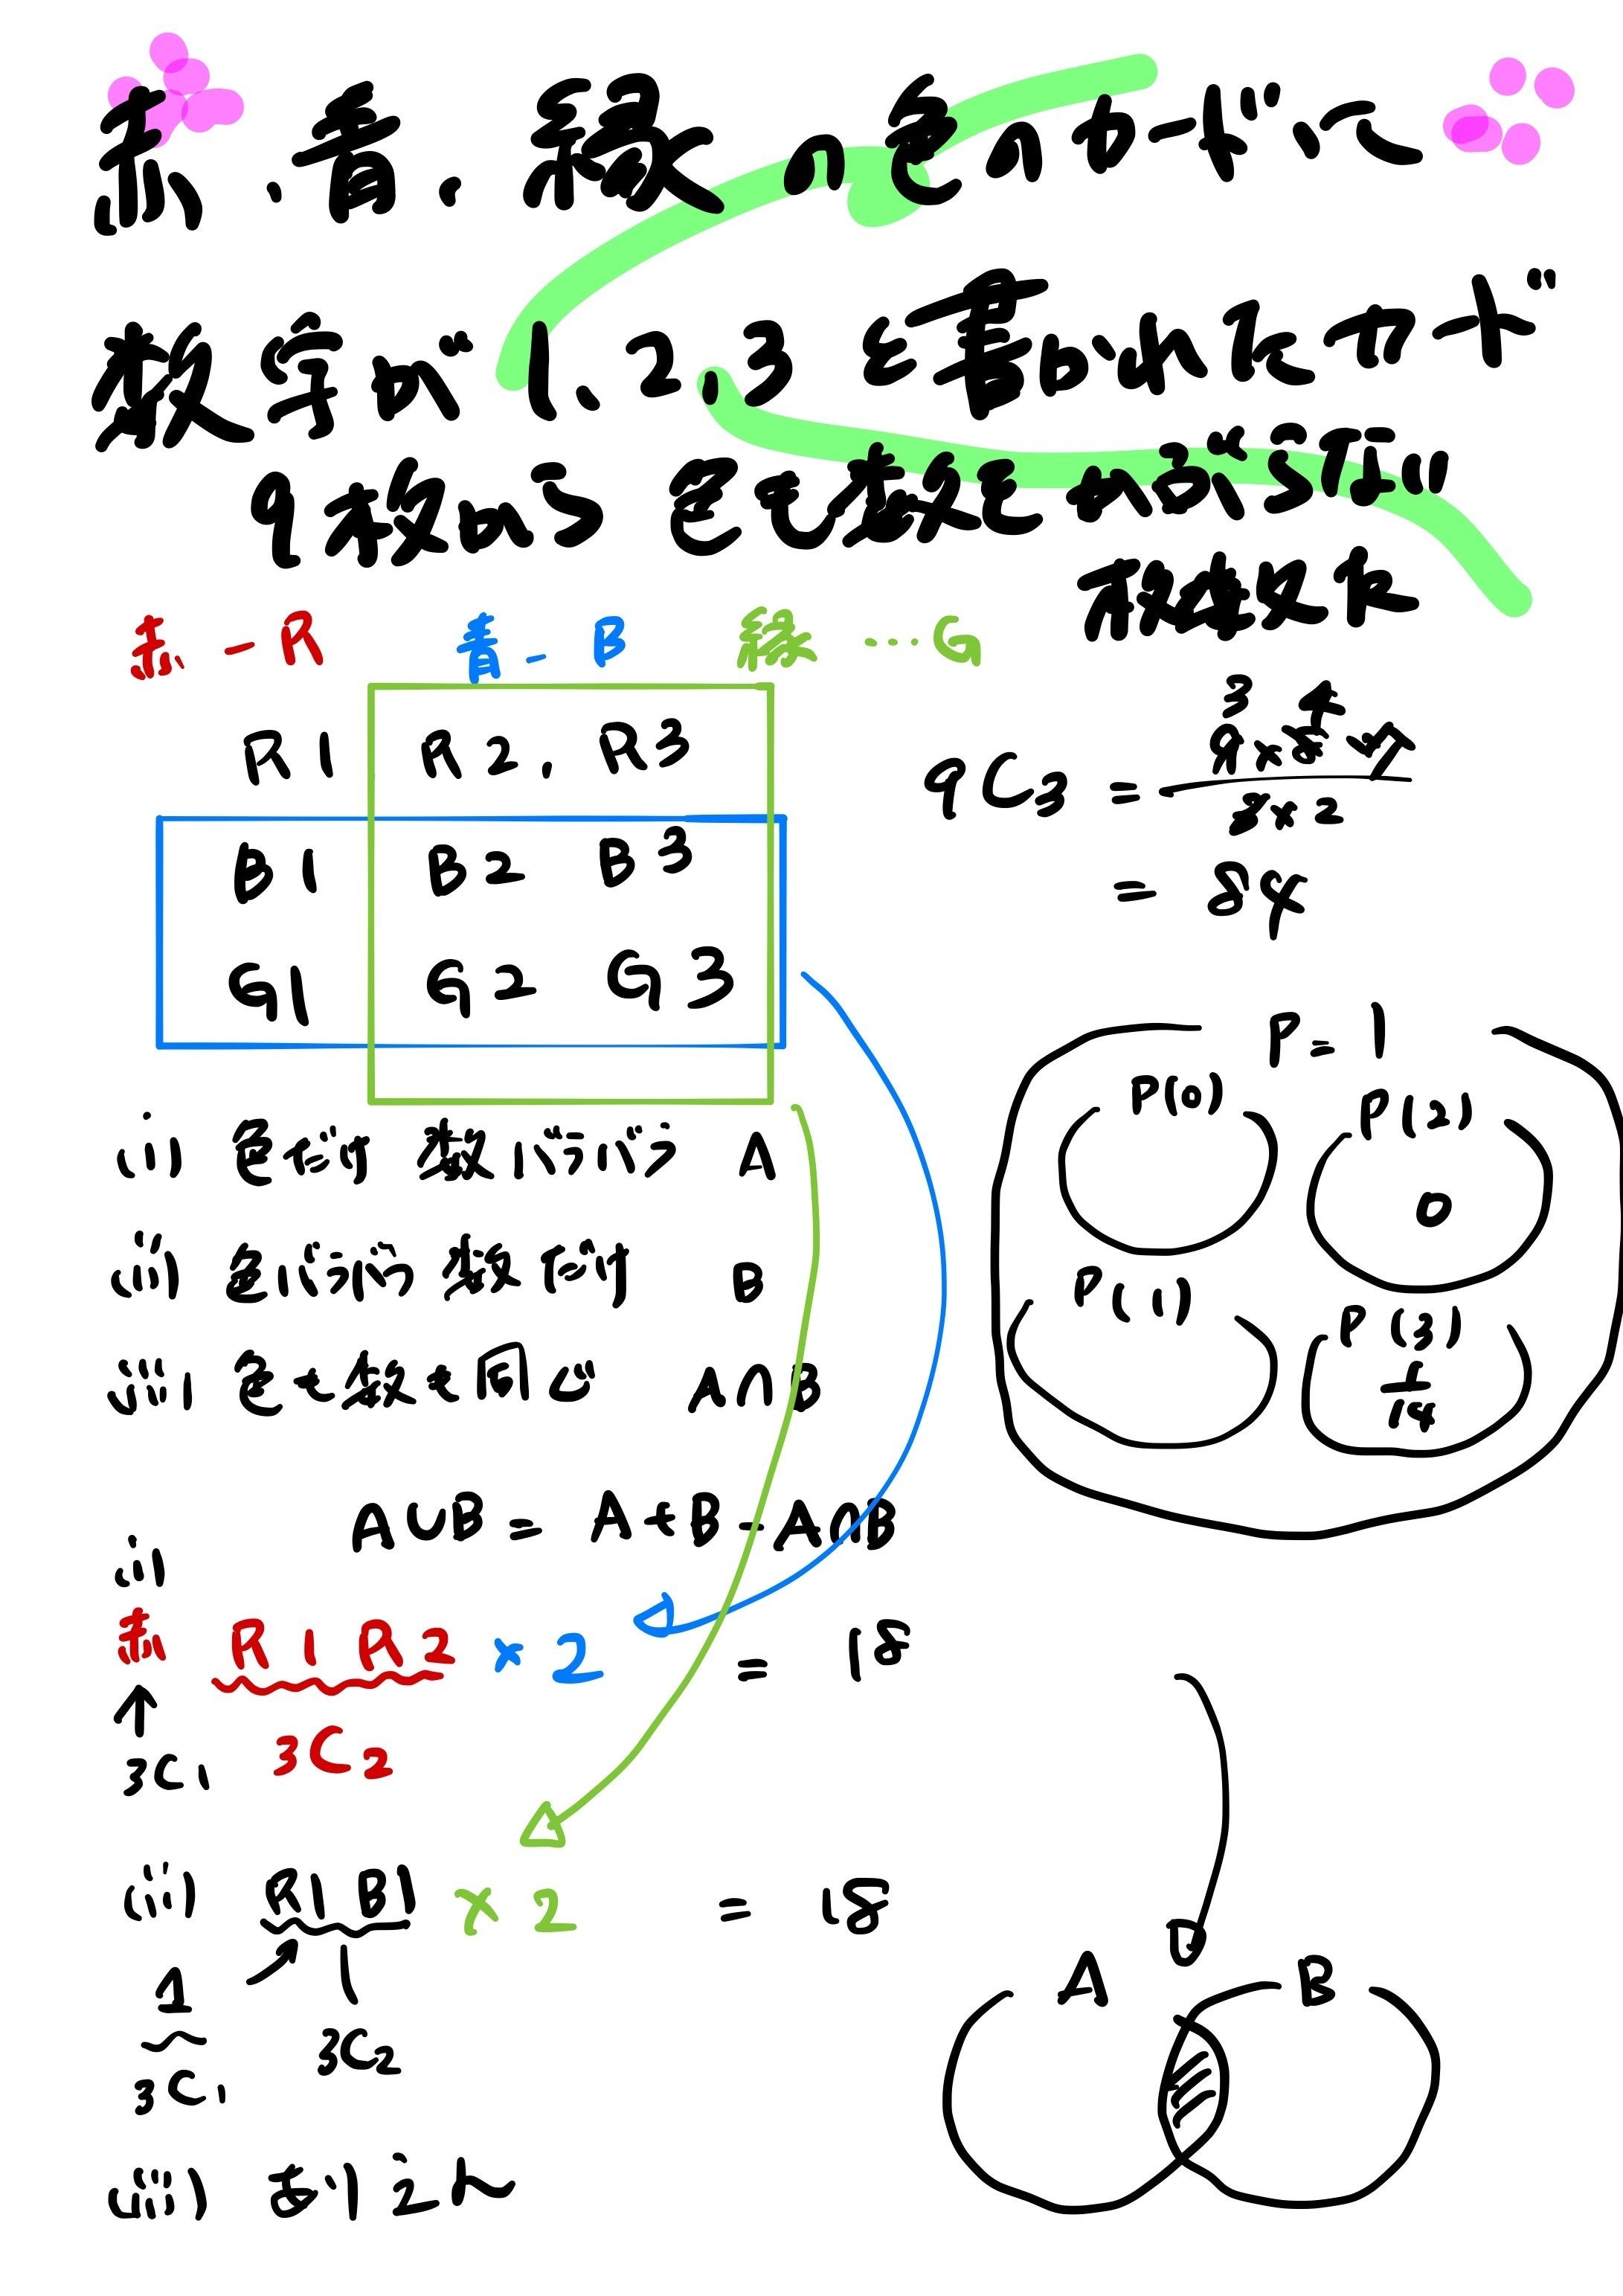 赤、青、緑の色のカードに
数字が1、2、3と書かれたカード
9枚から 色も数もかぶらない
枚
赤 - R 青 - B 緑 … G
R1 R2, R3
B1 B2 B3
G1 G2 G3
9C3 = 9×8×7
3 4
3×2
= 84
P = 1
P(0) P(2)
0
P(1) P(3)
1
14
(i) 色だけ 数バラバラ A
(ii) 色バラバラ 数だけ B
(iii) 色も数も同じ A∩B
A∪B = A+B-A∩B
(i)
赤 R1 R2 ×2 = 18
3C1 3C2
(ii) R1 B1 ×2 = 18
1
3C1 3C2
(iii) ありえん
A D B